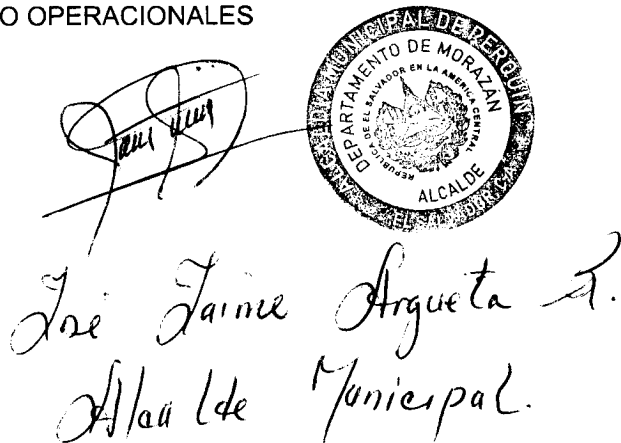 O OPERACIONALES
ALCALDIA MUNICIPAL DE PERQUIN
DEPARTAMENTO DE MORAZAN
REPUBLICA DE EL SALVADOR EN LA AMERICA CENTRAL
ALCALDE
EL SALVADOR C.A.
José Jaime Argueta R.
Alcalde Municipal.